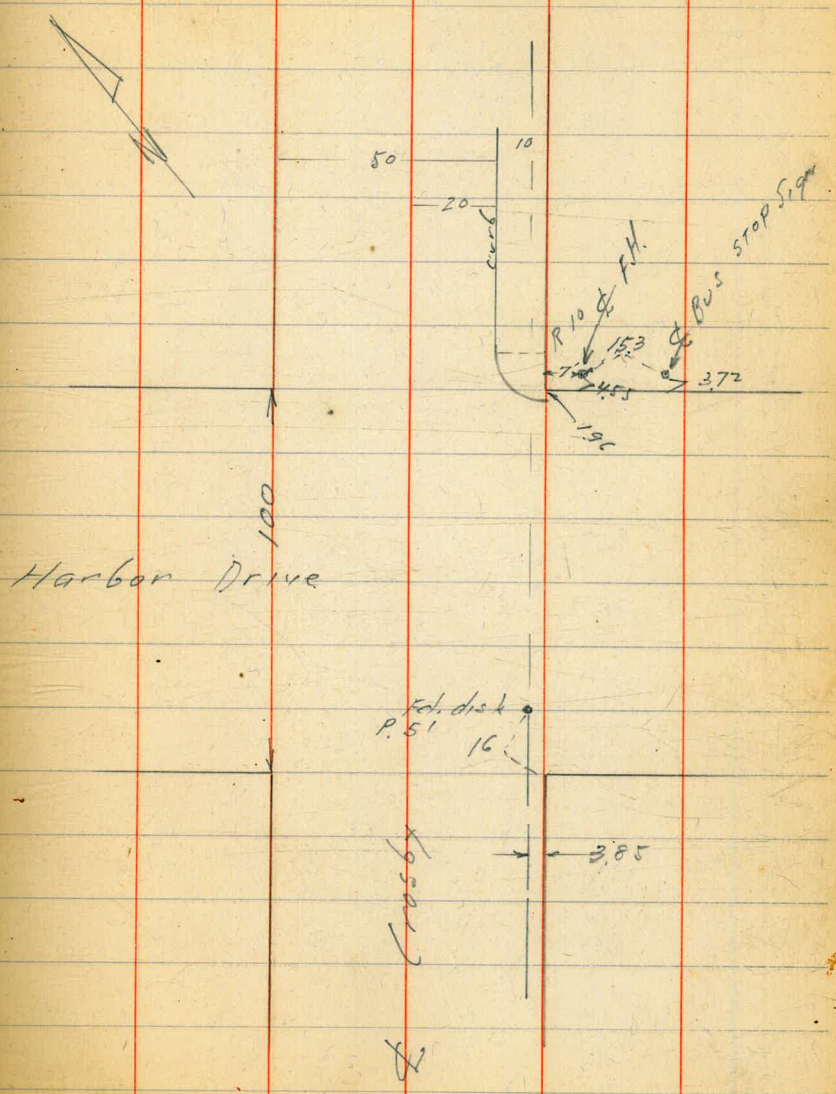 N
50
10
20
curb
R 10
℄ F.H.
℄ Bus STOP Sign
15.3
7.5
4.55
3.72
1.96
100
Harbor Drive
Fd. disk
P. 51
16
3.85
Crosby
℄